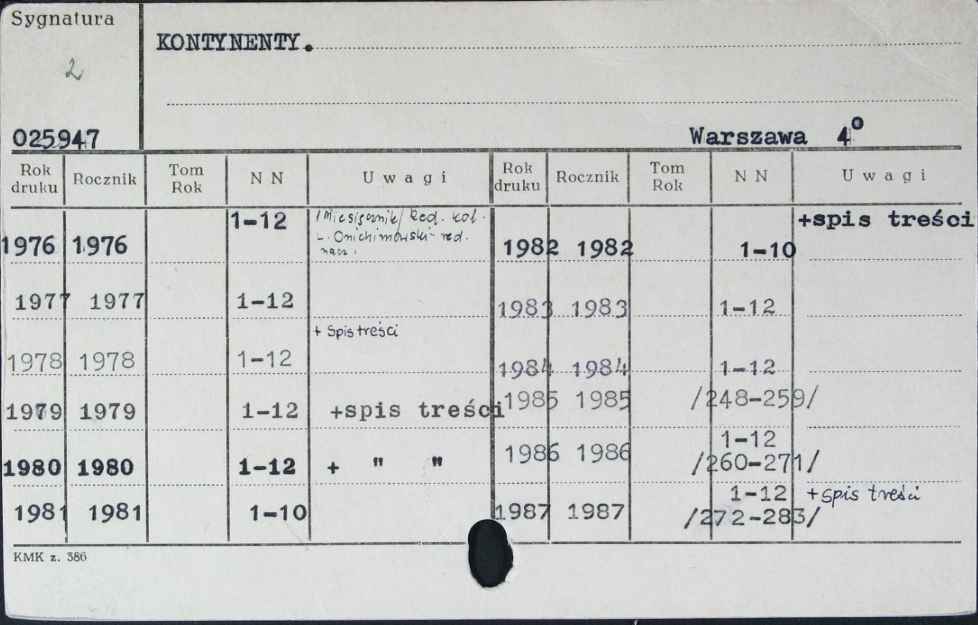 Sygnatura
2
KONTYNENTY.
025947
Warszawa 4°
Rok druku Rocznik Tom Rok NN Uwagi Rok druku Rocznik Tom Rok NN Uwagi
1976 1976 1-12 /Miesięcznik/ Red. kol.
L. Onichimowski - red.
nacz.
1977 1977 1-12
1978 1978 1-12 + spis treści
1979 1979 1-12 +spis treści
1980 1980 1-12 + " "
1981 1981 1-10
1982 1982 1-10 +spis treści
1983 1983 1-12
1984 1984 1-12
1985 1985 /248-259/
1986 1986 1-12
/260-271/
1987 1987 1-12 + spis treści
/272-283/
KMK z. 386